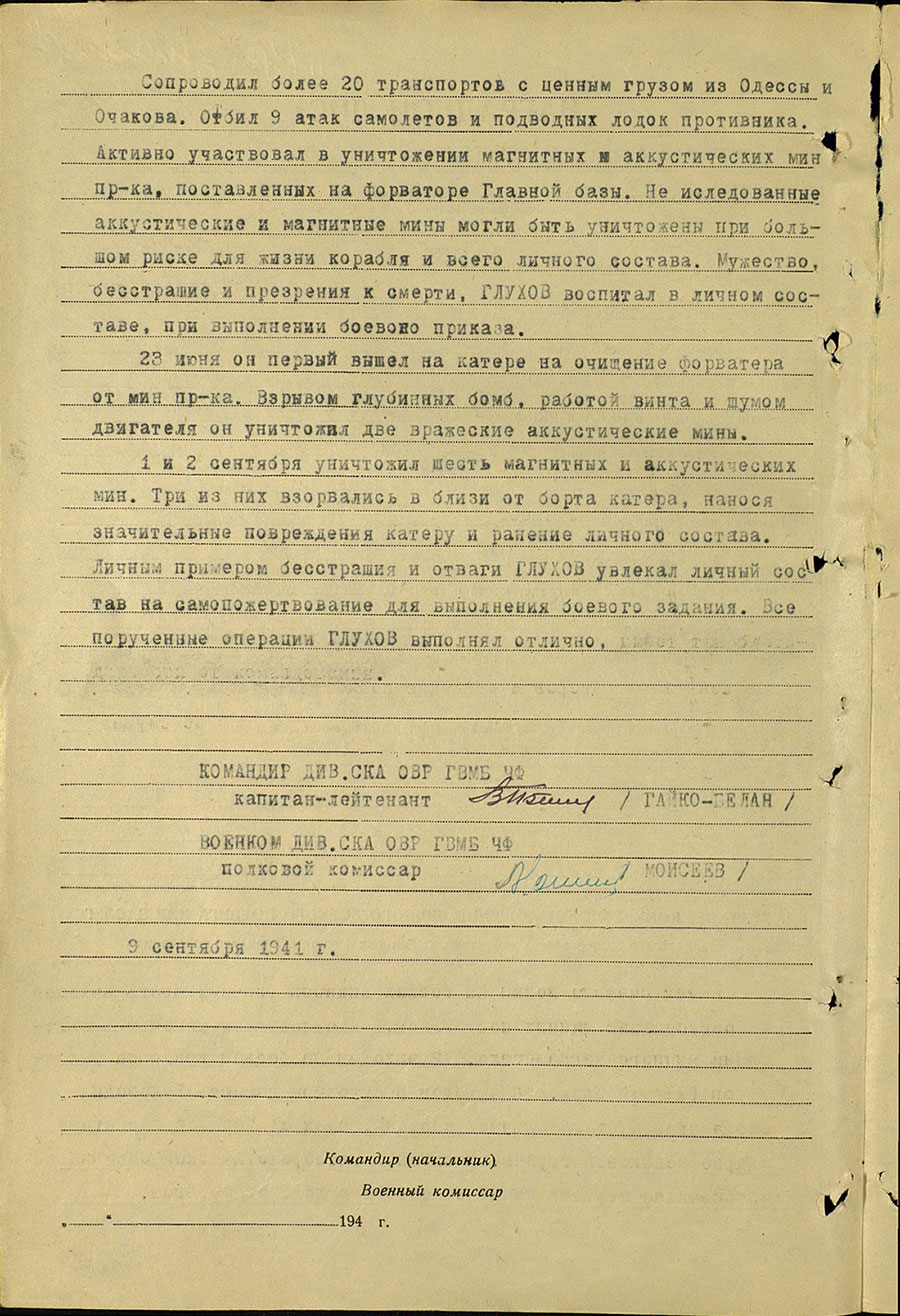 Сопроводил более 20 транспортов с ценным грузом из Одессы и
Очакова. Отбил 9 атак самолетов и подводных лодок противника.
Активно участвовал в уничтожении магнитных и аккустических мин
пр-ка, поставленных на форваторе Главной базы. Не иследованные
аккустические и магнитные мины могли быть уничтожены при боль-
шом риске для жизни корабля и всего личного состава. Мужество,
бесстрашие и презрения к смерти, ГЛУХОВ воспитал в личном сос-
таве, при выполнении боевоно приказа.
23 июня он первый вышел на катере на очищение форватера
от мин пр-ка. Взрывом глубинных бомб, работой винта и шумом
двигателя он уничтожил две вражеские аккустические мины.
1 и 2 сентября уничтожил шесть магнитных и аккустических
мин. Три из них взорвались в близи от борта катера, нанося
значительные повреждения катеру и ранение личного состава.
Личным примером бесстрашия и отваги ГЛУХОВ увлекал личный сос-
тав на самопожертвование для выполнения боевого задания. Все
порученные операции ГЛУХОВ выполнял отлично,
КОМАНДИР ДИВ.СКА ОВР ГВМБ ЧФ
капитан-лейтенант / ГАЙКО-БЕЛАН /
ВОЕНКОМ ДИВ.СКА ОВР ГВМБ ЧФ
полковой комиссар / МОИСЕЕВ /
9 сентября 1941 г.
Командир (начальник)
Военный комиссар
„ “ 194 г.